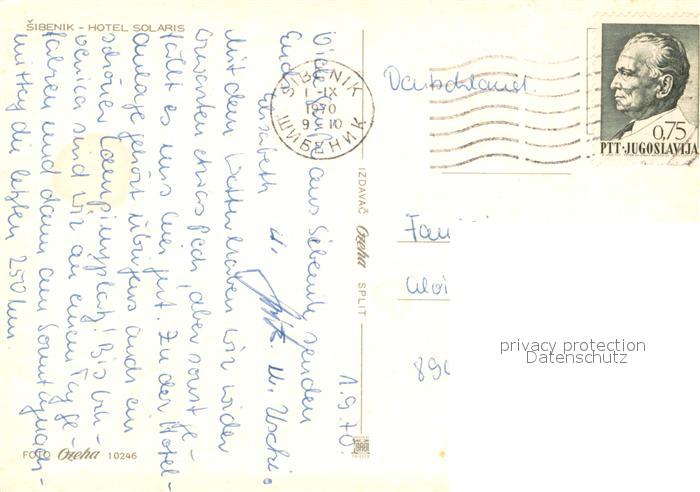 ŠIBENIK - HOTEL SOLARIS
1.9.70.
Viele aus Sibenik senden
Euch Elisabeth u. u. Uschi.
Mit dem Wetter haben wir wider
Erwarten etwas Pech, aber sonst ge-
fällt es uns hier gut. Zu der Hotel-
anlage gehört übrigens auch ein
schöner Campingplatz! Bis
sind wir an einem Tag ge-
fahren und dann am Sonntagnach-
mittag die letzten 250 km.
FOTO Oreha 10246
IZDAVAČ Oreha SPLIT
ŠIBENIK
1 IX
1970
9 10
ШИБЕНИК
Deutschland
0,75
PTT·JUGOSLAVIJA
Fam
Aloi
890
privacy protection
Datenschutz